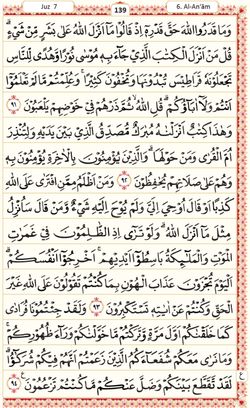 Juz 7 139 6. Al-An'ām
وَمَا قَدَرُوا اللّٰهَ حَقَّ قَدْرِهٖٓ اِذْ قَالُوْا مَآ اَنْزَلَ اللّٰهُ عَلٰى بَشَرٍ مِّنْ شَيْءٍ ؕ
قُلْ مَنْ اَنْزَلَ الْكِتٰبَ الَّذِيْ جَآءَ بِهٖ مُوْسٰى نُوْرًا وَّهُدًى لِّلنَّاسِ
تَجْعَلُوْنَهٗ قَرَاطِيْسَ تُبْدُوْنَهَا وَتُخْفُوْنَ كَثِيْرًا ۚ وَعُلِّمْتُمْ مَّا لَمْ تَعْلَمُوْٓا
اَنْتُمْ وَلَآ اٰبَآؤُكُمْ ؕ قُلِ اللّٰهُ ۙ ثُمَّ ذَرْهُمْ فِيْ خَوْضِهِمْ يَلْعَبُوْنَ ﴿٩١﴾
وَهٰذَا كِتٰبٌ اَنْزَلْنٰهُ مُبٰرَكٌ مُّصَدِّقُ الَّذِيْ بَيْنَ يَدَيْهِ وَلِتُنْذِرَ
اُمَّ الْقُرٰى وَمَنْ حَوْلَهَا ؕ وَالَّذِيْنَ يُؤْمِنُوْنَ بِالْاٰخِرَةِ يُؤْمِنُوْنَ بِهٖ
وَهُمْ عَلٰى صَلَاتِهِمْ يُحٰفِظُوْنَ ﴿٩٢﴾ وَمَنْ اَظْلَمُ مِمَّنِ افْتَرٰى عَلَى اللّٰهِ
كَذِبًا اَوْ قَالَ اُوْحِيَ اِلَيَّ وَلَمْ يُوْحَ اِلَيْهِ شَيْءٌ وَّمَنْ قَالَ سَاُنْزِلُ
مِثْلَ مَآ اَنْزَلَ اللّٰهُ ؕ وَلَوْ تَرٰٓى اِذِ الظّٰلِمُوْنَ فِيْ غَمَرٰتِ
الْمَوْتِ وَالْمَلٰٓئِكَةُ بَاسِطُوْٓا اَيْدِيْهِمْ ۚ اَخْرِجُوْٓا اَنْفُسَكُمْ ؕ
اَلْيَوْمَ تُجْزَوْنَ عَذَابَ الْهُوْنِ بِمَا كُنْتُمْ تَقُوْلُوْنَ عَلَى اللّٰهِ غَيْرَ
الْحَقِّ وَكُنْتُمْ عَنْ اٰيٰتِهٖ تَسْتَكْبِرُوْنَ ﴿٩٣﴾ وَلَقَدْ جِئْتُمُوْنَا فُرَادٰى
كَمَا خَلَقْنٰكُمْ اَوَّلَ مَرَّةٍ وَّتَرَكْتُمْ مَّا خَوَّلْنٰكُمْ وَرَآءَ ظُهُوْرِكُمْ ۚ
وَمَا نَرٰى مَعَكُمْ شُفَعَآءَكُمُ الَّذِيْنَ زَعَمْتُمْ اَنَّهُمْ فِيْكُمْ شُرَكٰٓؤُا ؕ
لَقَدْ تَّقَطَّعَ بَيْنَكُمْ وَضَلَّ عَنْكُمْ مَّا كُنْتُمْ تَزْعُمُوْنَ ﴿٩٤﴾